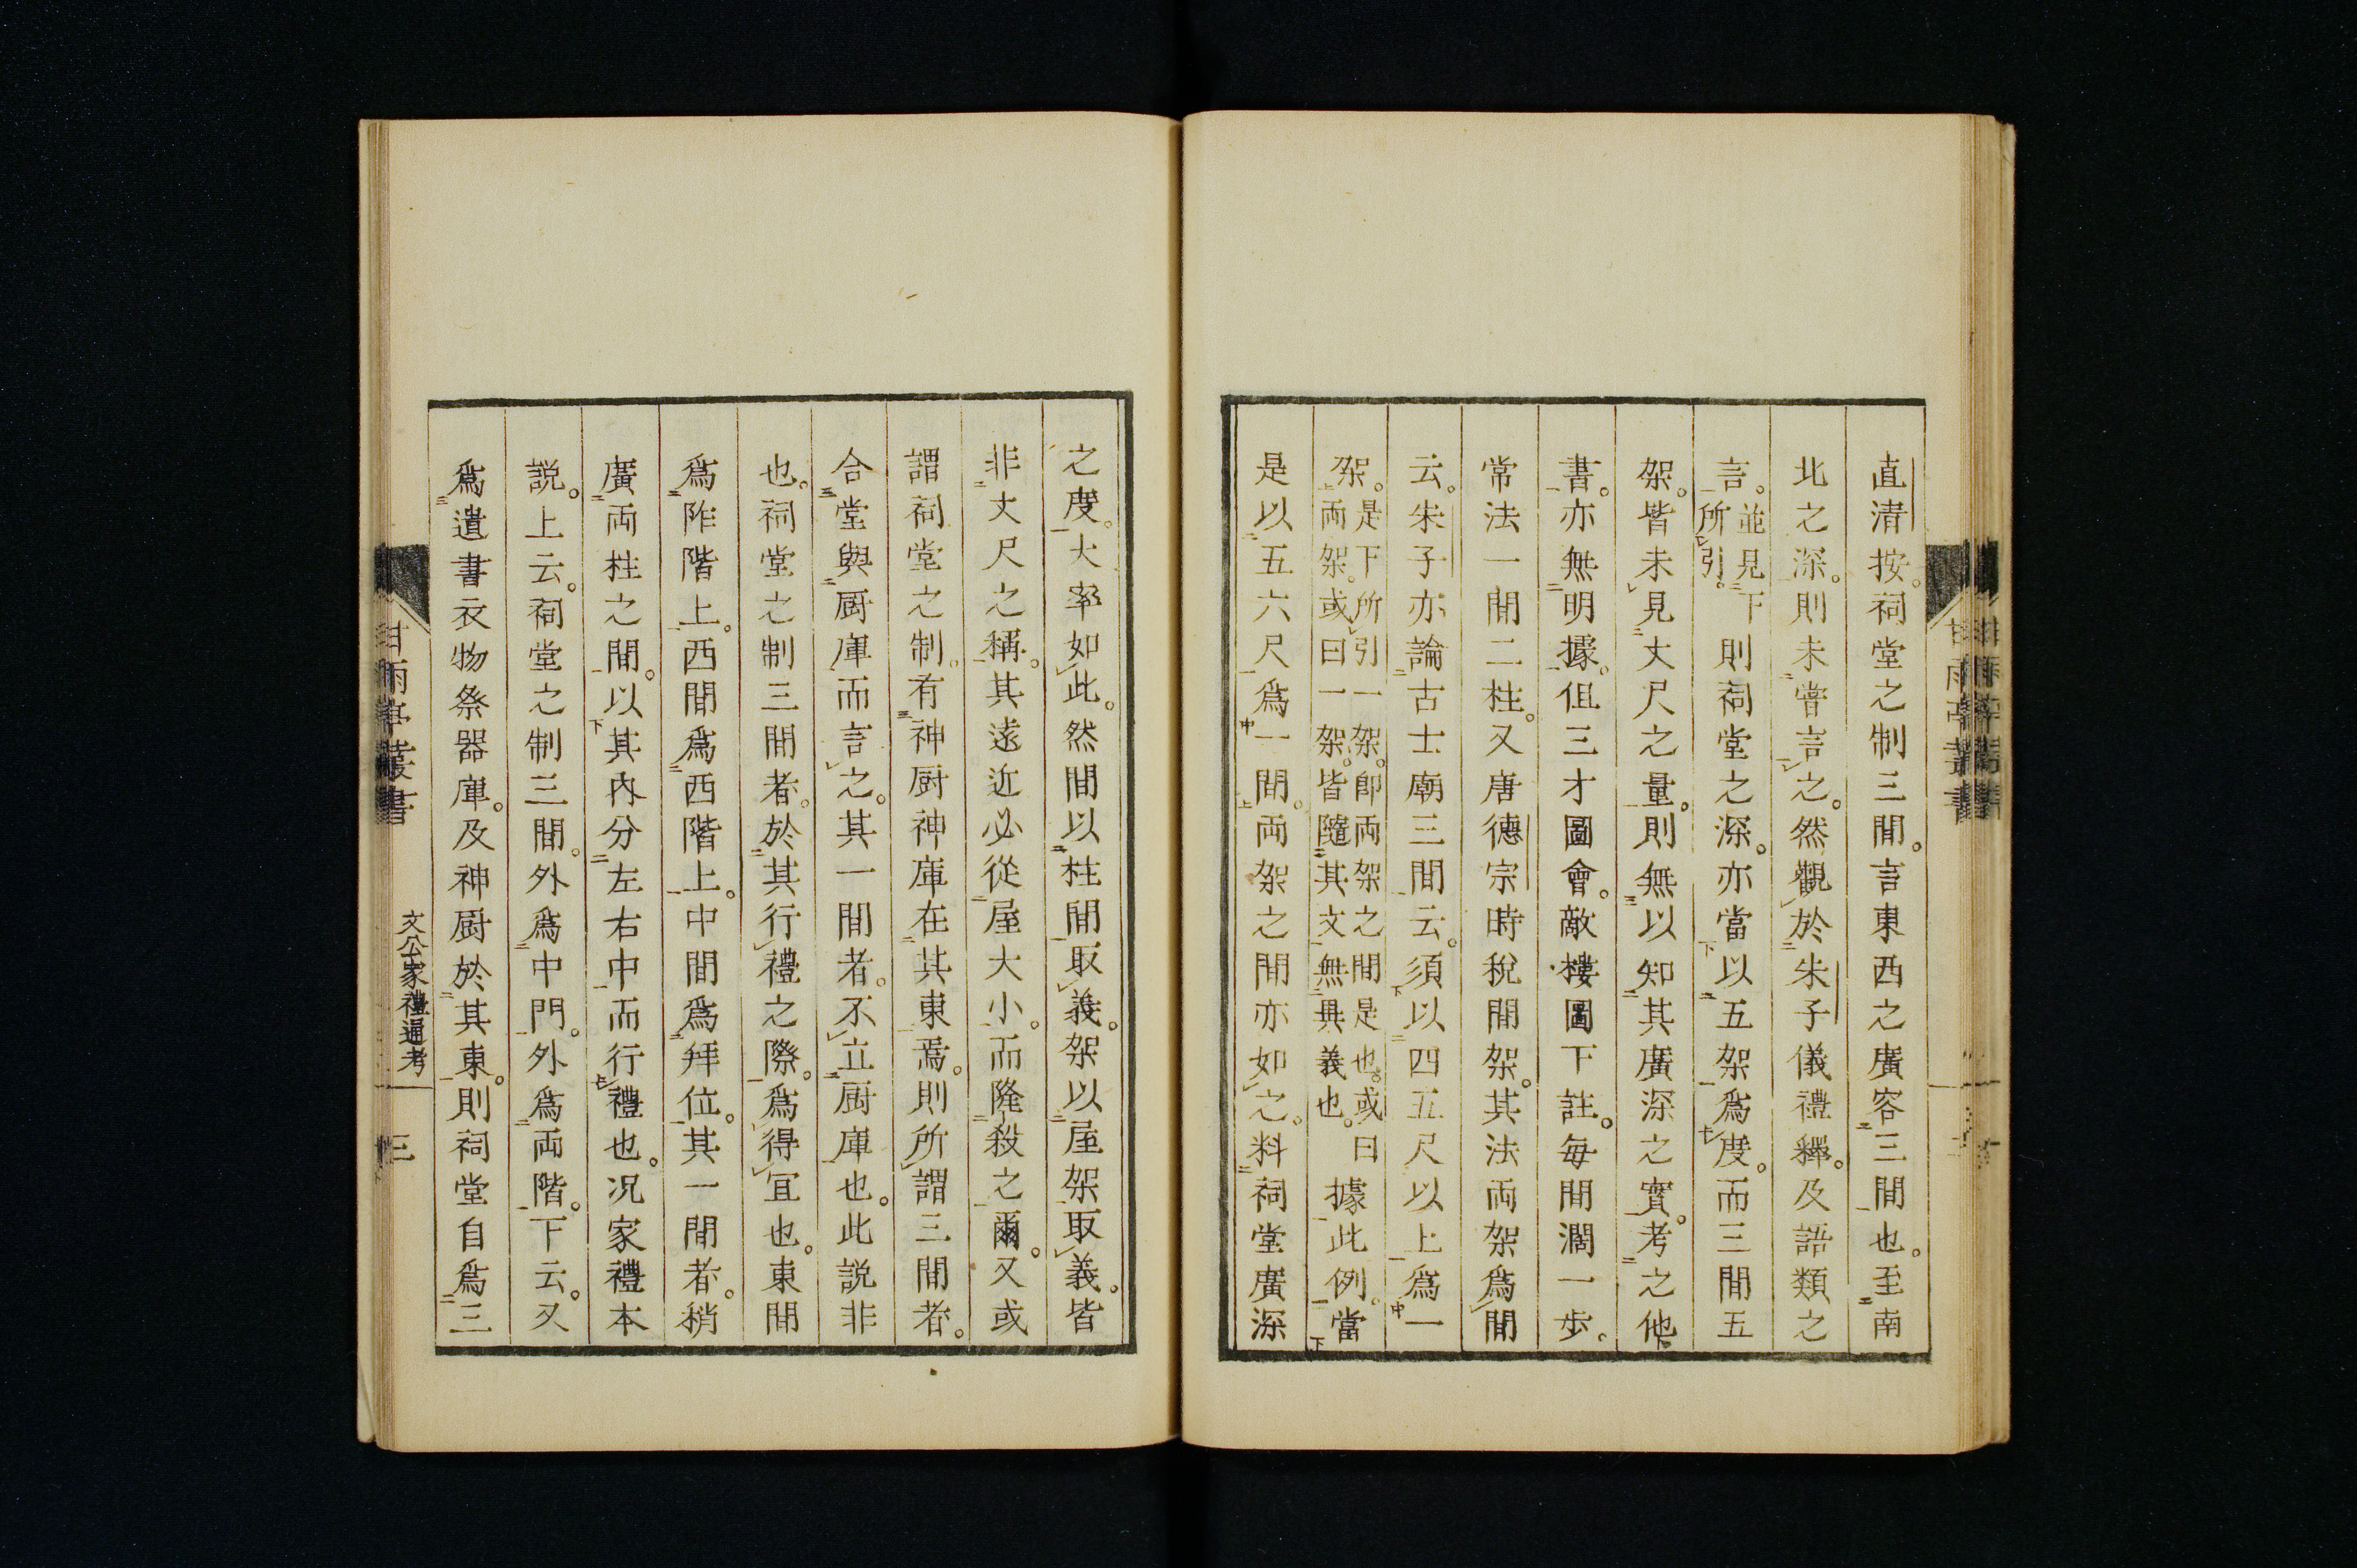 直清按。祠堂之制三間。言東西之廣容三間也。至南
北之深。則未嘗言之。然觀於朱子儀禮釋。及語類之
言。並見下所引。則祠堂之深。亦當以五架爲度。而三間五
架。皆未見丈尺之量。則無以知其廣深之實。考之他
書。亦無明據。但三才圖會。敵樓圖下註。每間濶一步。
常法一間二柱。又唐德宗時稅間架。其法兩架爲間
云。朱子亦論古士廟三間云。須以四五尺以上爲一
架。是下所引一架。即兩架之間是也。或曰兩架。或曰一架。皆隨其文無異義也。據此例。當
是以五六尺爲一間。兩架之間亦如之。料祠堂廣深
之度。大率如此。然間以柱間取義。架以屋架取義。皆
非丈尺之稱。其遠近必從屋大小。而隆殺之爾。又或
謂祠堂之制。有神厨神庫在其東焉。則所謂三間者。
合堂與厨庫而言之。其一間者。不立厨庫也。此説非
也。祠堂之制三間者。於其行禮之際。爲得宜也。東間
爲阼階上。西間爲西階上。中間爲拜位。其一間者。稍
廣兩柱之間。以其內分左右中而行禮也。况家禮本
説。上云。祠堂之制三間。外爲中門。外爲兩階。下云。又
爲遺書衣物祭器庫。及神厨於其東。則祠堂自爲三
甘雨亭叢書
文公家禮通考
三